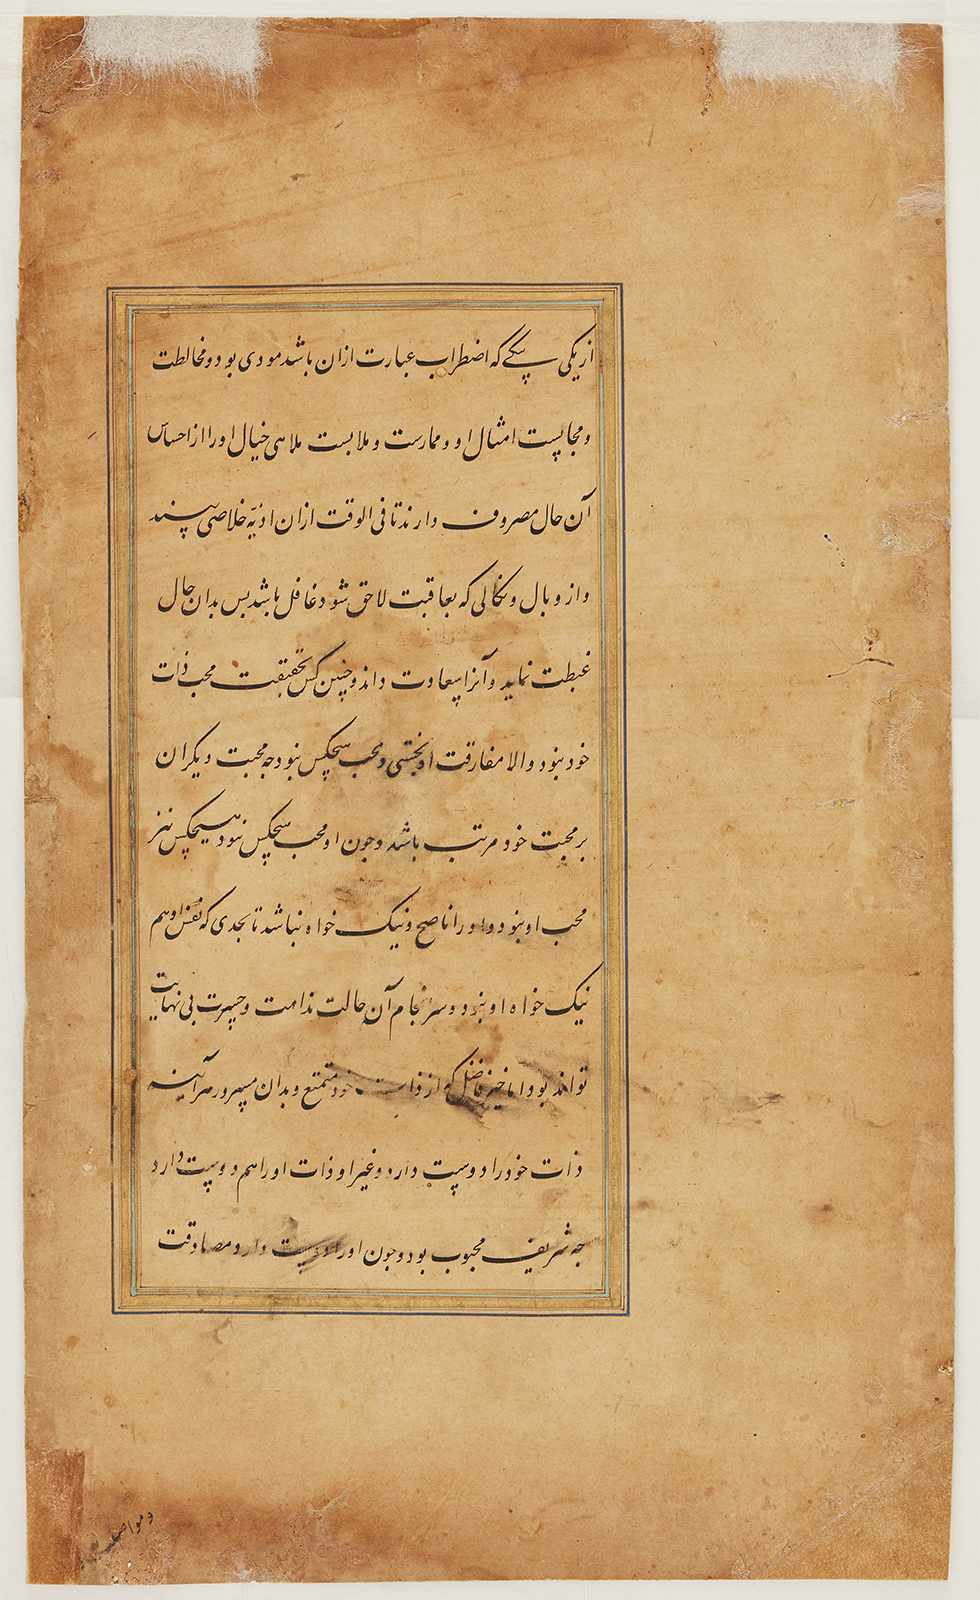 از یکی بیکی که اضطراب عبارت ازان باشد مودی بود و مخالطت
و مجالست امثال او و ممارست و ملابست ملاهی خیال او را از احساس
آن حال مصروف دارند تا فی الوقت ازان اذیه خلاصی بیند
و از وبال و نکالی که بعاقبت لاحق شود غافل باشد پس بدان حال
غبطت نماید و آنرا سعادت داند و چنین کس بحقیقت محب ذات
خود نبود والا مفارقت او نجستی و محب هیچکس نبود چه محبت دیکران
بر محبت خود مرتب باشد و چون او محب هیچکس نبود هیچکس نیز
محب او نبود و او را ناصح و نیک خواه نباشد تا بحدی که نفس او هم
نیک خواه او نبود و سرانجام آن حالت ندامت و حسرت بی نهایت
تواند بود و اما خیر فاضل که از ذات خود متمتع و بدان مسرور هرآینه
ذات خود را دوست دارد و غیر او ذات او را هم دوست دارد
چه شریف محبوب بود و چون او را دوست دارد و مصادقت
و مواصلت